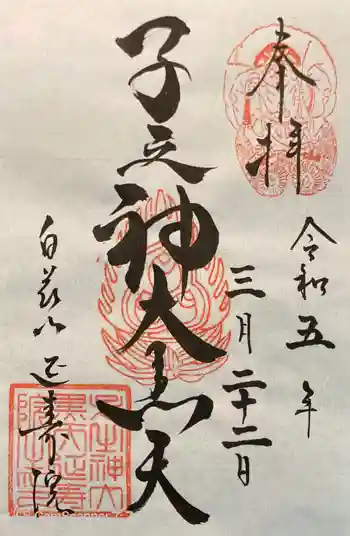 奉拝
令和五年
三月二十二日
子之神大黒天
白花山延壽院